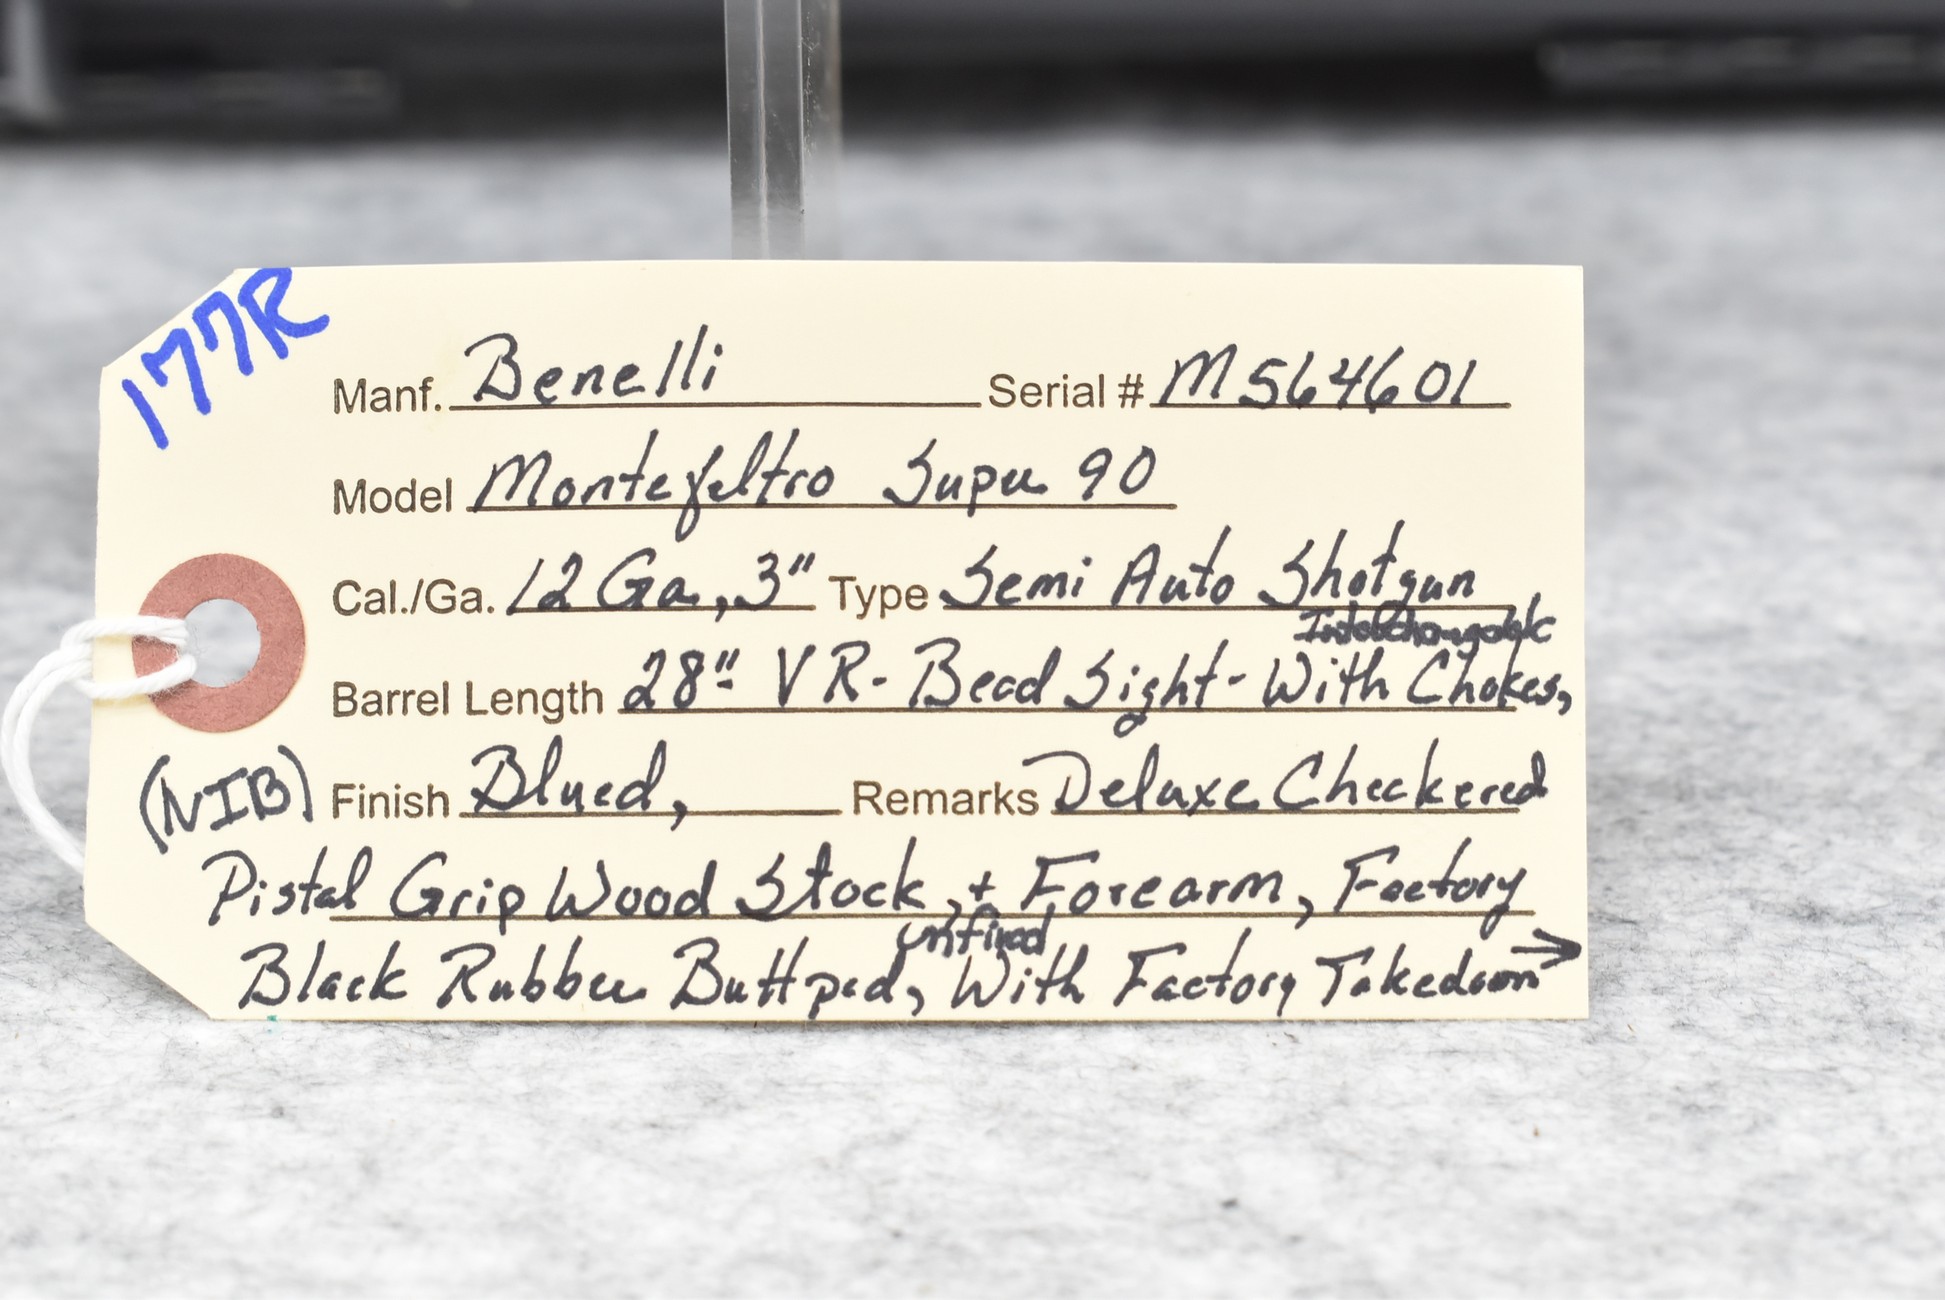 177R
Manf. Benelli Serial # M564601
Model Montefeltro Super 90
Cal./Ga. 12 Ga., 3" Type Semi Auto Shotgun
Interchangeable
Barrel Length 28" VR- Bead Sight- With Chokes,
(NIB) Finish Blued, Remarks Deluxe Checkered
Pistol Grip Wood Stock, + Forearm, Factory
unfired
Black Rubber Buttpad, With Factory Takedown →